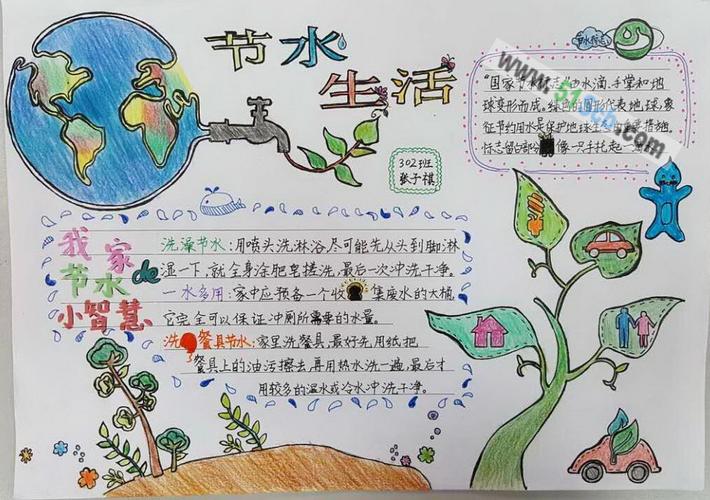 节水
生活
节水标志
"国家节水标志"由水滴、手掌和地
球变形而成。绿色的圆形代表地球，象
征节约用水是保护地球生态的重要措施。
标志留白部分像一只手托起一
302班
张子祺
我家
节水de
小智慧
洗澡节水：用喷头洗淋浴，尽可能先从头到脚淋
湿一下，就全身涂肥皂搓洗，最后一次冲洗干净。
一水多用：家中应预备一个收集废水的大桶，
它完全可以保证冲厕所需要的水量。
洗餐具节水：家里洗餐具，最好先用纸把
餐具上的油污擦去，再用热水洗一遍，最后才
用较多的温水或冷水冲洗干净。